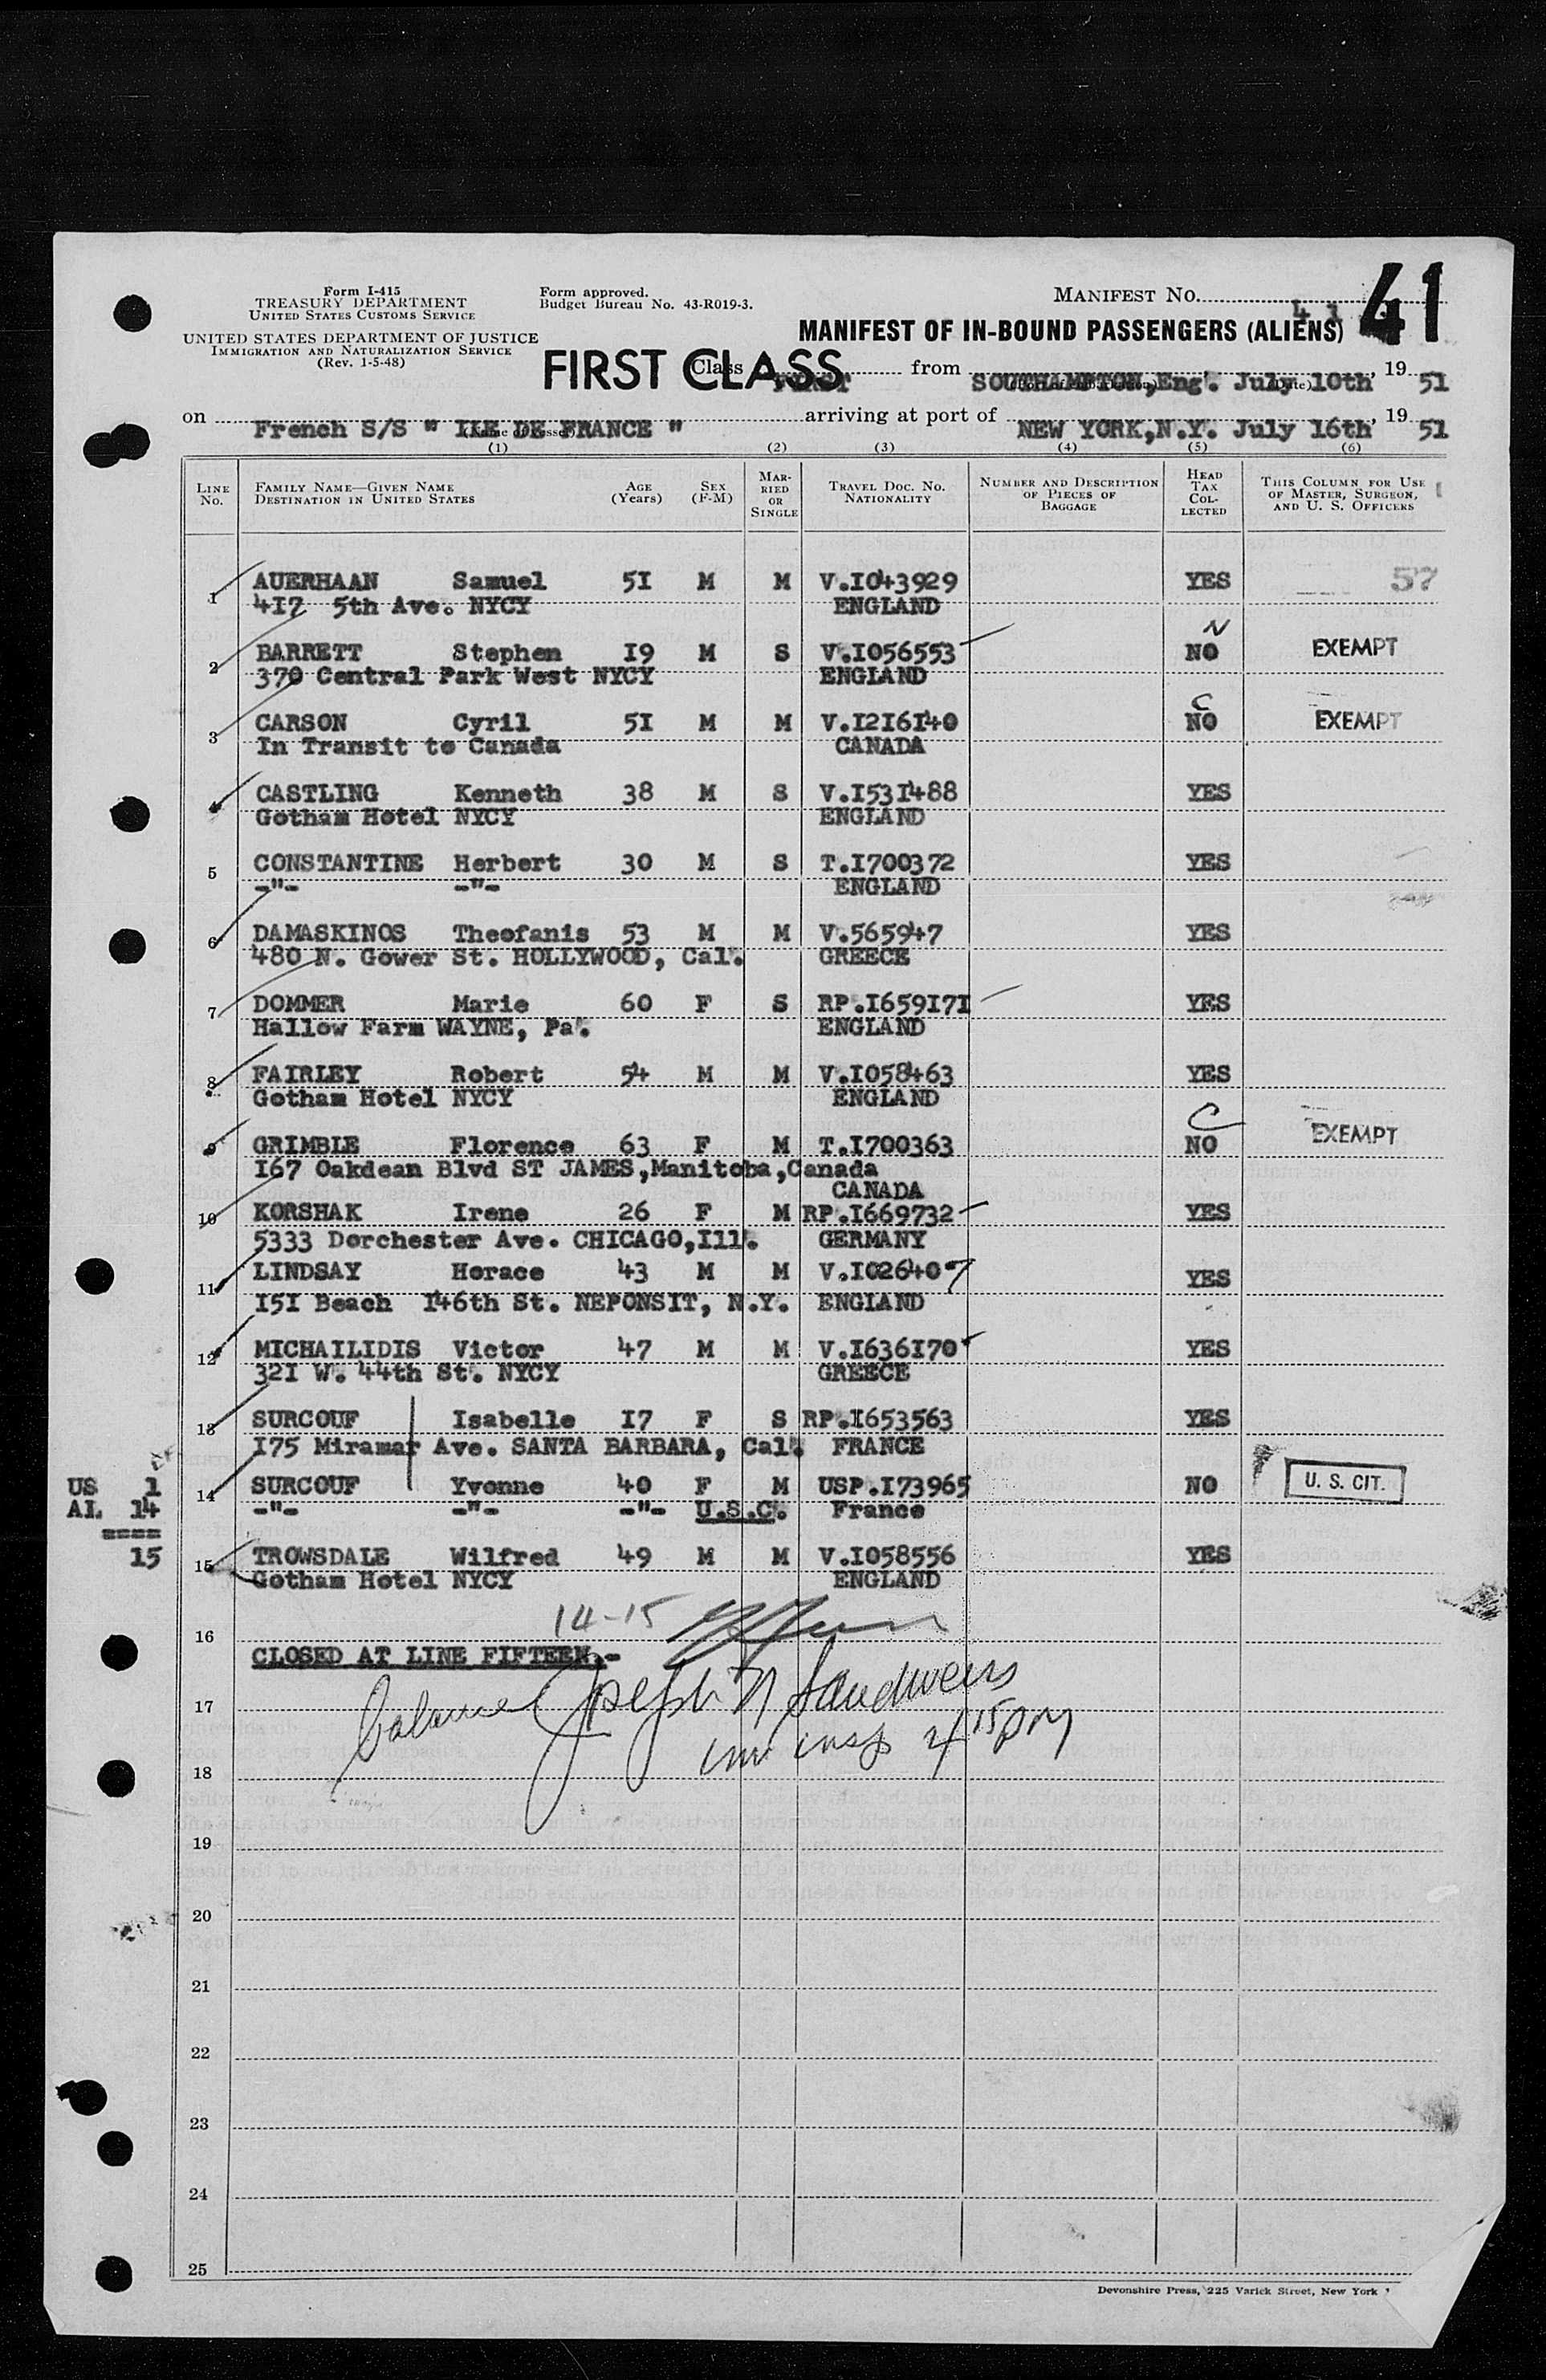 Form I-415
TREASURY DEPARTMENT
UNITED STATES CUSTOMS SERVICE
UNITED STATES DEPARTMENT OF JUSTICE
IMMIGRATION AND NATURALIZATION SERVICE
(Rev. 1-5-48)
Form approved.
Budget Bureau No. 43-R019-3.
MANIFEST No. 41
41
MANIFEST OF IN-BOUND PASSENGERS (ALIENS)
FIRST CLASS
Class from SOUTHAMPTON,Eng. July 10th, 19 51
on French S/S " ILE DE FRANCE " arriving at port of NEW YORK,N.Y. July 16th, 19 51
(1) (2) (3) (4) (5) (6)
LINE No. FAMILY NAME—GIVEN NAME DESTINATION IN UNITED STATES AGE (Years) SEX (F-M) MARRIED OR SINGLE TRAVEL DOC. NO. NATIONALITY NUMBER AND DESCRIPTION OF PIECES OF BAGGAGE HEAD TAX COLLECTED THIS COLUMN FOR USE OF MASTER, SURGEON, AND U. S. OFFICERS
1 AUERHAAN Samuel 5I M M V.I043929 YES 57
4I7 5th Ave. NYCY ENGLAND
N
2 BARRETT Stephen I9 M S V.I056553 NO EXEMPT
370 Central Park West NYCY ENGLAND
C
3 CARSON Cyril 5I M M V.I2I6I40 NO EXEMPT
In Transit to Canada CANADA
4 CASTLING Kenneth 38 M S V.I53I488 YES
Gotham Hotel NYCY ENGLAND
5 CONSTANTINE Herbert 30 M S T.I700372 YES
-"- -"- ENGLAND
6 DAMASKINOS Theofanis 53 M M V.565947 YES
480 N. Gower St. HOLLYWOOD, Cal. GREECE
7 DOMMER Marie 60 F S RP.I659I7I YES
Hallow Farm WAYNE, Pa. ENGLAND
8 FAIRLEY Robert 54 M M V.I058463 YES
Gotham Hotel NYCY ENGLAND
C
9 GRIMBLE Florence 63 F M T.I700363 NO EXEMPT
I67 Oakdean Blvd ST JAMES,Manitoba,Canada
CANADA
10 KORSHAK Irene 26 F M RP.I669732 YES
5333 Dorchester Ave. CHICAGO,Ill. GERMANY
11 LINDSAY Horace 43 M M V.I026407 YES
I5I Beach I46th St. NEPONSIT, N.Y. ENGLAND
12 MICHAILIDIS Victor 47 M M V.I636I70 YES
32I W. 44th St. NYCY GREECE
13 SURCOUF Isabelle I7 F S RP.I653563 YES
I75 Miramar Ave. SANTA BARBARA, Cal. FRANCE
US 1
14 SURCOUF Yvonne 40 F M USP.I73965 NO U. S. CIT.
AL 14
-"- -"- -"- U.S.C. France
====
15
15 TROWSDALE Wilfred 49 M M V.I058556 YES
Gotham Hotel NYCY ENGLAND
14-15
16
CLOSED AT LINE FIFTEEN.-
balance Joseph N Sandweiss
17
imm insp 2/15pm
18
19
20
21
22
23
24
25
Devonshire Press, 225 Varick Street, New York